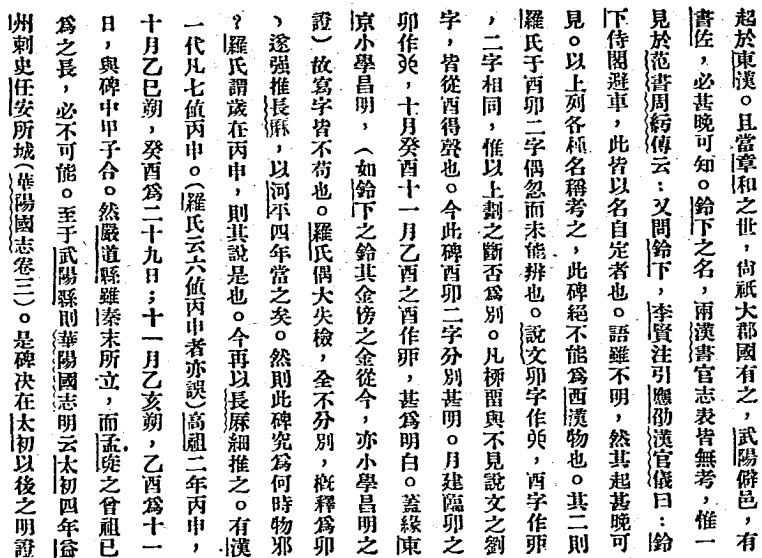 起於東漢。且當章和之世，尙祇大郡國有之，武陽僻邑，有
書佐，必甚晚可知。鈴下之名，兩漢書官志表皆無考，惟一
見於范書周紡傳云：又問鈴下，李賢注引應劭漢官儀曰：鈴
下侍閣避車，此皆以名自定者也。語雖不明，然其起甚晚可
見。以上列各種名稱考之，此碑絕不能爲西漢物也。其二則
羅氏于酉卯二字偶忽而未能辨也。說文卯字作丣，酉字作丣
，二字相同，惟以上劃之斷否爲別。凡桺畱與不見說文之劉
字，皆從酉得聲也。今此碑酉卯二字分別甚明。月建臨卯之
卯作丣，十月癸酉十一月乙酉之酉作丣，甚爲明白。蓋緣東
京小學昌明，（如鈴下之鈴其金傍之金從今，亦小學昌明之
證）故寫字皆不苟也。羅氏偶大失檢，全不分別，槪釋爲卯
，遂强推長厤，以河平四年當之矣。然則此碑究爲何時物邪
？羅氏謂歲在丙申，則其說是也。今再以長厤細推之。有漢
一代凡七値丙申。（羅氏云六値丙申者亦誤）高祖二年丙申，
十月乙巳朔，癸酉爲二十九日；十一月乙亥朔，乙酉爲十一
日，與碑中甲子合。然嚴道縣雖秦末所立，而孟琁之曾祖已
爲之長，必不可能。至于武陽縣則華陽國志明云太初四年益
州刺史任安所城（華陽國志卷三）。是碑決在太初以後之明證